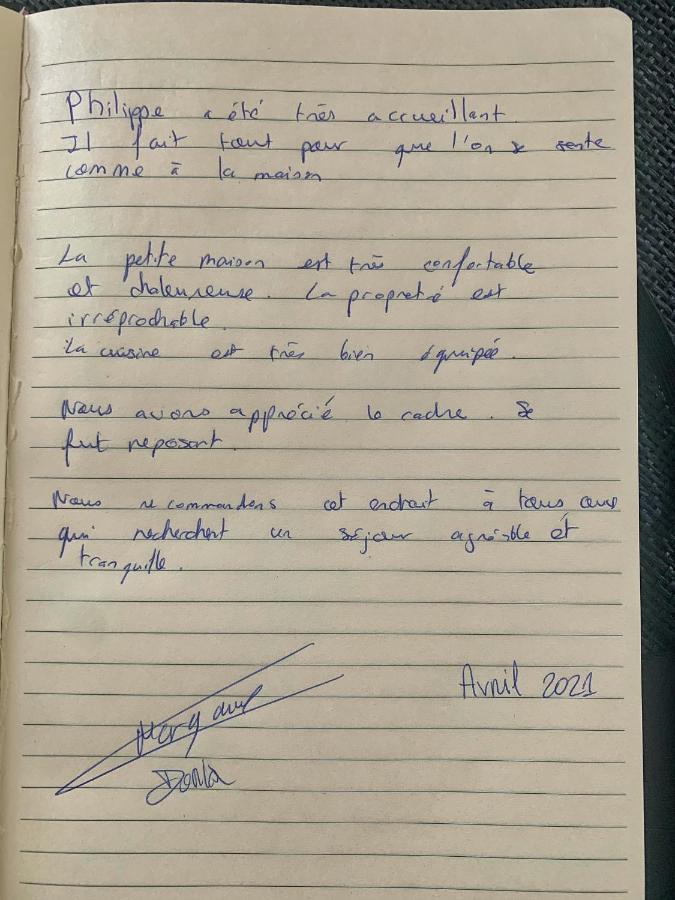 Philippe a été très accueillant.
Il fait tout pour que l'on se sente
comme à la maison
La petite maison est très confortable
et chaleureuse. La propreté est
irréprochable.
La cuisine est très bien équipée.
Nous avions apprécié le cadre. Se
fut reposant.
Nous recommandons cet endroit à tous ceux
qui recherchent un séjour agréable et
tranquille.
Avril 2021